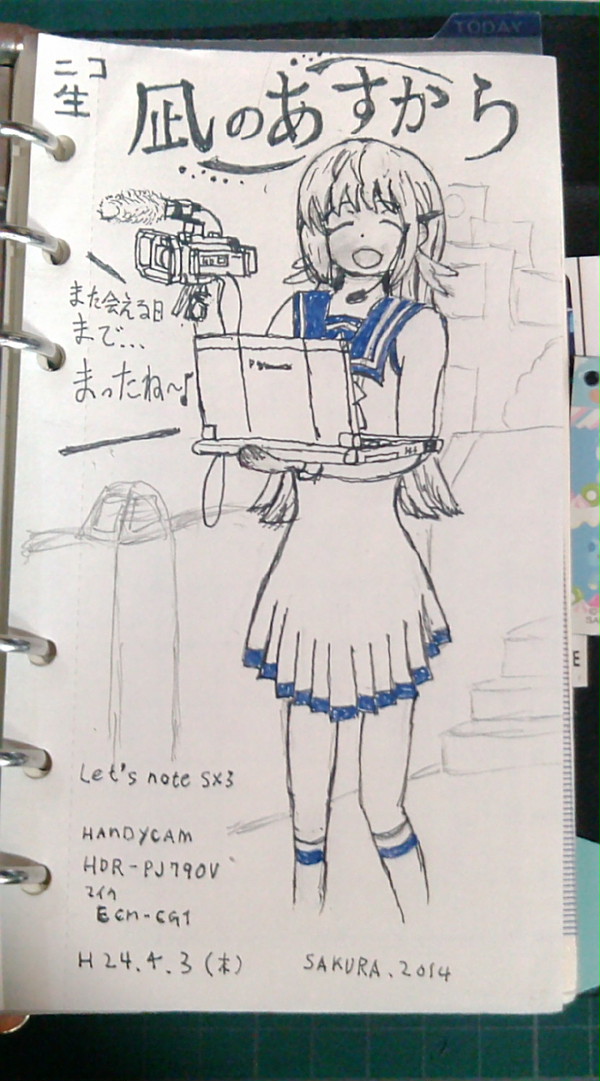 TODAY
ニコ
生
凪のあすから
また会える日
まで...
まったね〜♪
Let's note SX3
HANDYCAM
HDR-PJ790V
マイク
ECM-CG1
H24.4.3(木)
SAKURA.2014
E